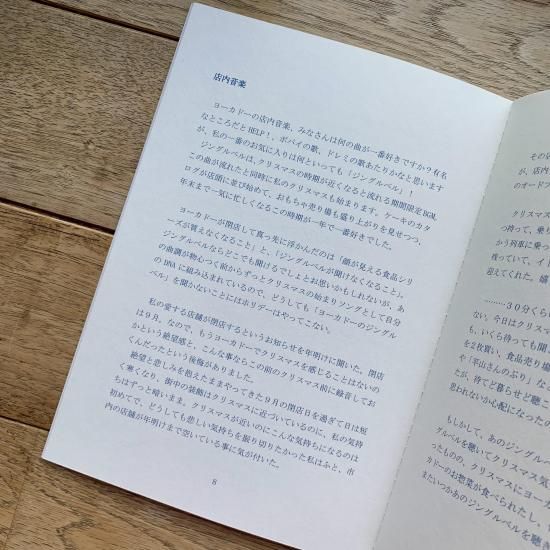 店内音楽
ヨーカドーの店内音楽、みなさんは何の曲が一番好きですか？有名
なところだとHELP！、ポパイの歌、ドレミの歌あたりかなと思います
が、私の一番のお気に入りは何といっても「ジングルベル」！
ジングルベルは、クリスマスの時期が近くなると流れる期間限定BGM。
この曲が流れたと同時に私のクリスマスも始まります。ケーキのカタ
ログが店頭に並び始めて、おもちゃ売り場も盛り上がりを見せつつ、
年末まで一気に忙しくなるこの時期が一年で一番好きでした。
ヨーカドーが閉店して真っ先に浮かんだのは「顔が見える食品シリ
ーズが買えなくなること」と、「ジングルベルが聞けなくなること」。
ジングルベルならどこでも聞けるでしょとお思いかもしれないが、あ
の曲調が物心つく前からずっとクリスマスの始まりソングとして自分
のDNAに組み込まれているので、どうしても「ヨーカドーのジングル
ベル」を聞かないことにはホリデーはやってこない。
私の愛する店舗が閉店するというお知らせを年明けに聞いた。閉店
は9月。なので、もうヨーカドーでクリスマスを感じることはないの
かという絶望感と、こんな事ならこの前のクリスマス前に録音してお
くんだったという後悔がありました。
絶望と悲しみを抱えたままやってきた9月の閉店日を過ぎて日は短
く寒くなり、街中の装飾はクリスマスに近づいているのに、私の気持
ちはずっと暗いまま。クリスマスが近いのにこんな気持ちになるのは
初めてで、どうしても悲しい気持ちを振り切りたかった私はふと、市
内の店舗が年明けまで空いている事に気が付いた。
8
その店
が、店内
のオードブ
クリスマス
つ持って、乗り
かう列車に乗っ
残っていて、イト
迎えてくれた。嬉
………30分くら
い。今日はクリスマ
も、いくら待っても聞
を2枚買い、食品売り場
や「平山さんのぶり」な
たが、待てど暮らせど聴こ
思われないか心配になったの
もしかして、あのジングルベ
グルベルを聴いてクリスマス気
ったものの、クリスマスにヨーカ
カドーのお惣菜が食べられたし、
またいつかあのジングルベルを聴き